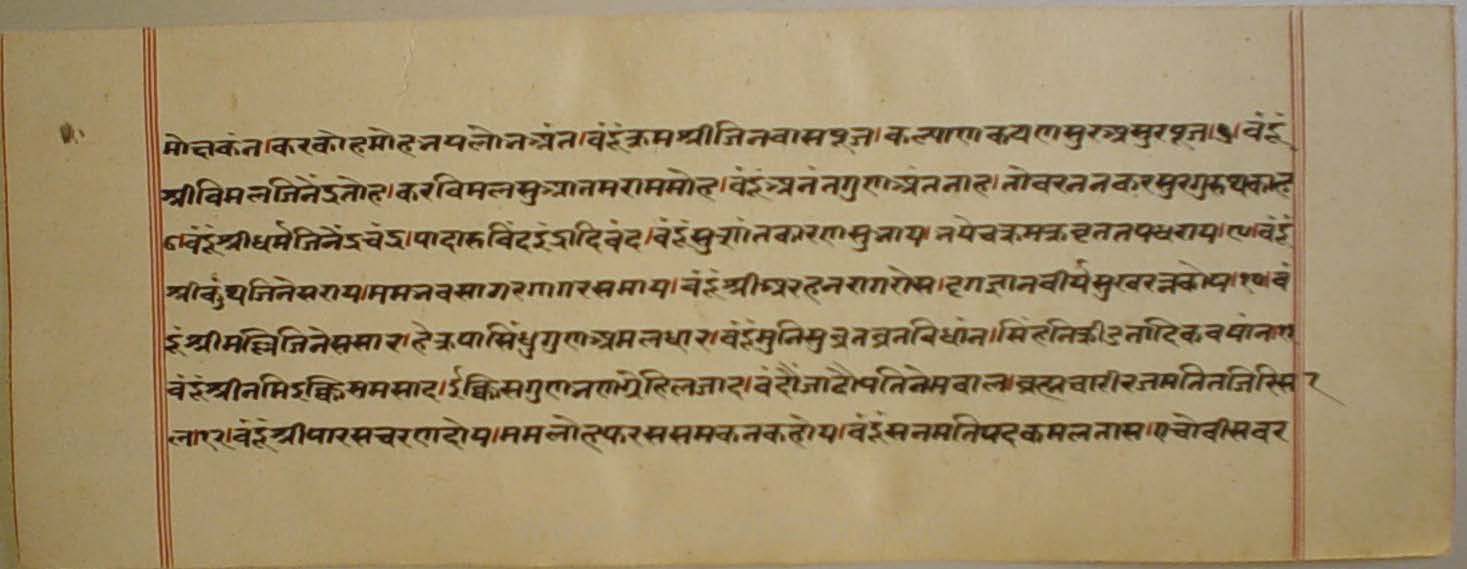 मोक्षकंत।करकोहमोहनयलोनअंत।वंदूंक्रमश्रीजिनवासपूज।कल्याणकयणसुरअसुरपूज।८।वंदूं
श्रीविमलजिनेंद्रतोह।करविमलसुआतमराममोह।वंदूंअनंतगुणअंतनाह।तोवरननकरसुरगुरुथकाह
९।वंदूंश्रीधर्मजिनेंद्रचंद्र।पादारविंदइंद्रादिवंद।वंदूंसुशांतकारणसुन्याय।नयेचक्रमक्रवृततपधराय।१०।वंदूं
श्रीकुंथुजिनेसराय।ममभवसागरगागरसमाय।वंदूंश्रीअरहनरागरोस।दृगज्ञानवीर्यसुखरत्नकोष।११।वं
दूंश्रीमल्लिजिनेससार।हैक्रपासिंधुगुणअमलधार।वंदूंमुनिसुव्रतव्रतविधांन।सिंहनिक्रीडतादिकवषांन
वंदूंश्रीनमिइक्किसमसाद।इक्किसगुणनणग्रेहिलजाद।वंदौंजादौपतिनेमवाल।ब्रह्मचारीरजमतितजिरिसा
ला१२।वंदूंश्रीपारसचरणदोय।ममलोहफरससमकनकहोय।वंदूंसनमतिपदकमलतास।एचोवीसवर